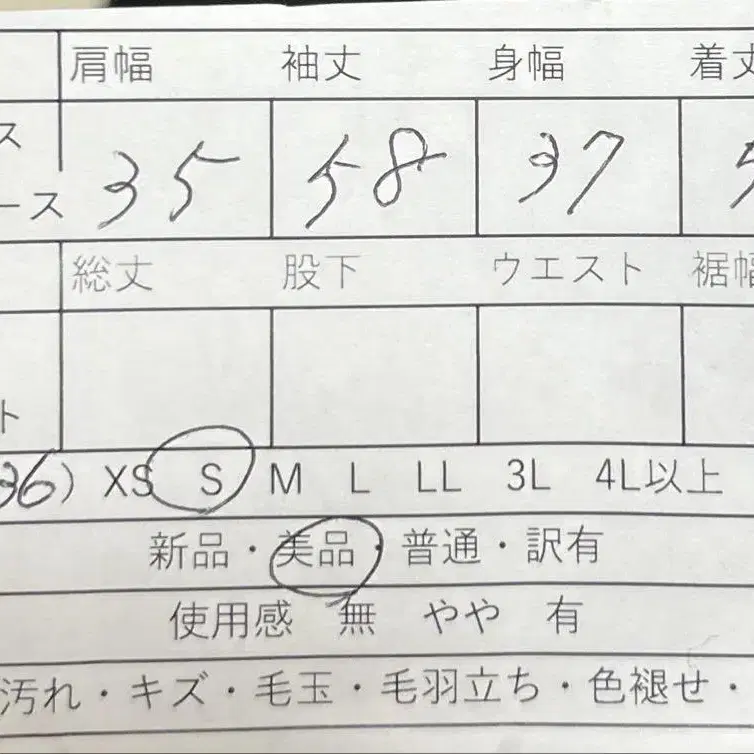 肩幅 袖丈 身幅 着丈
ス
ース 35 58 37 5
総丈 股下 ウエスト 裾幅
ト
36) XS S M L LL 3L 4L以上
新品・美品・普通・訳有
使用感 無 やや 有
汚れ・キズ・毛玉・毛羽立ち・色褪せ・